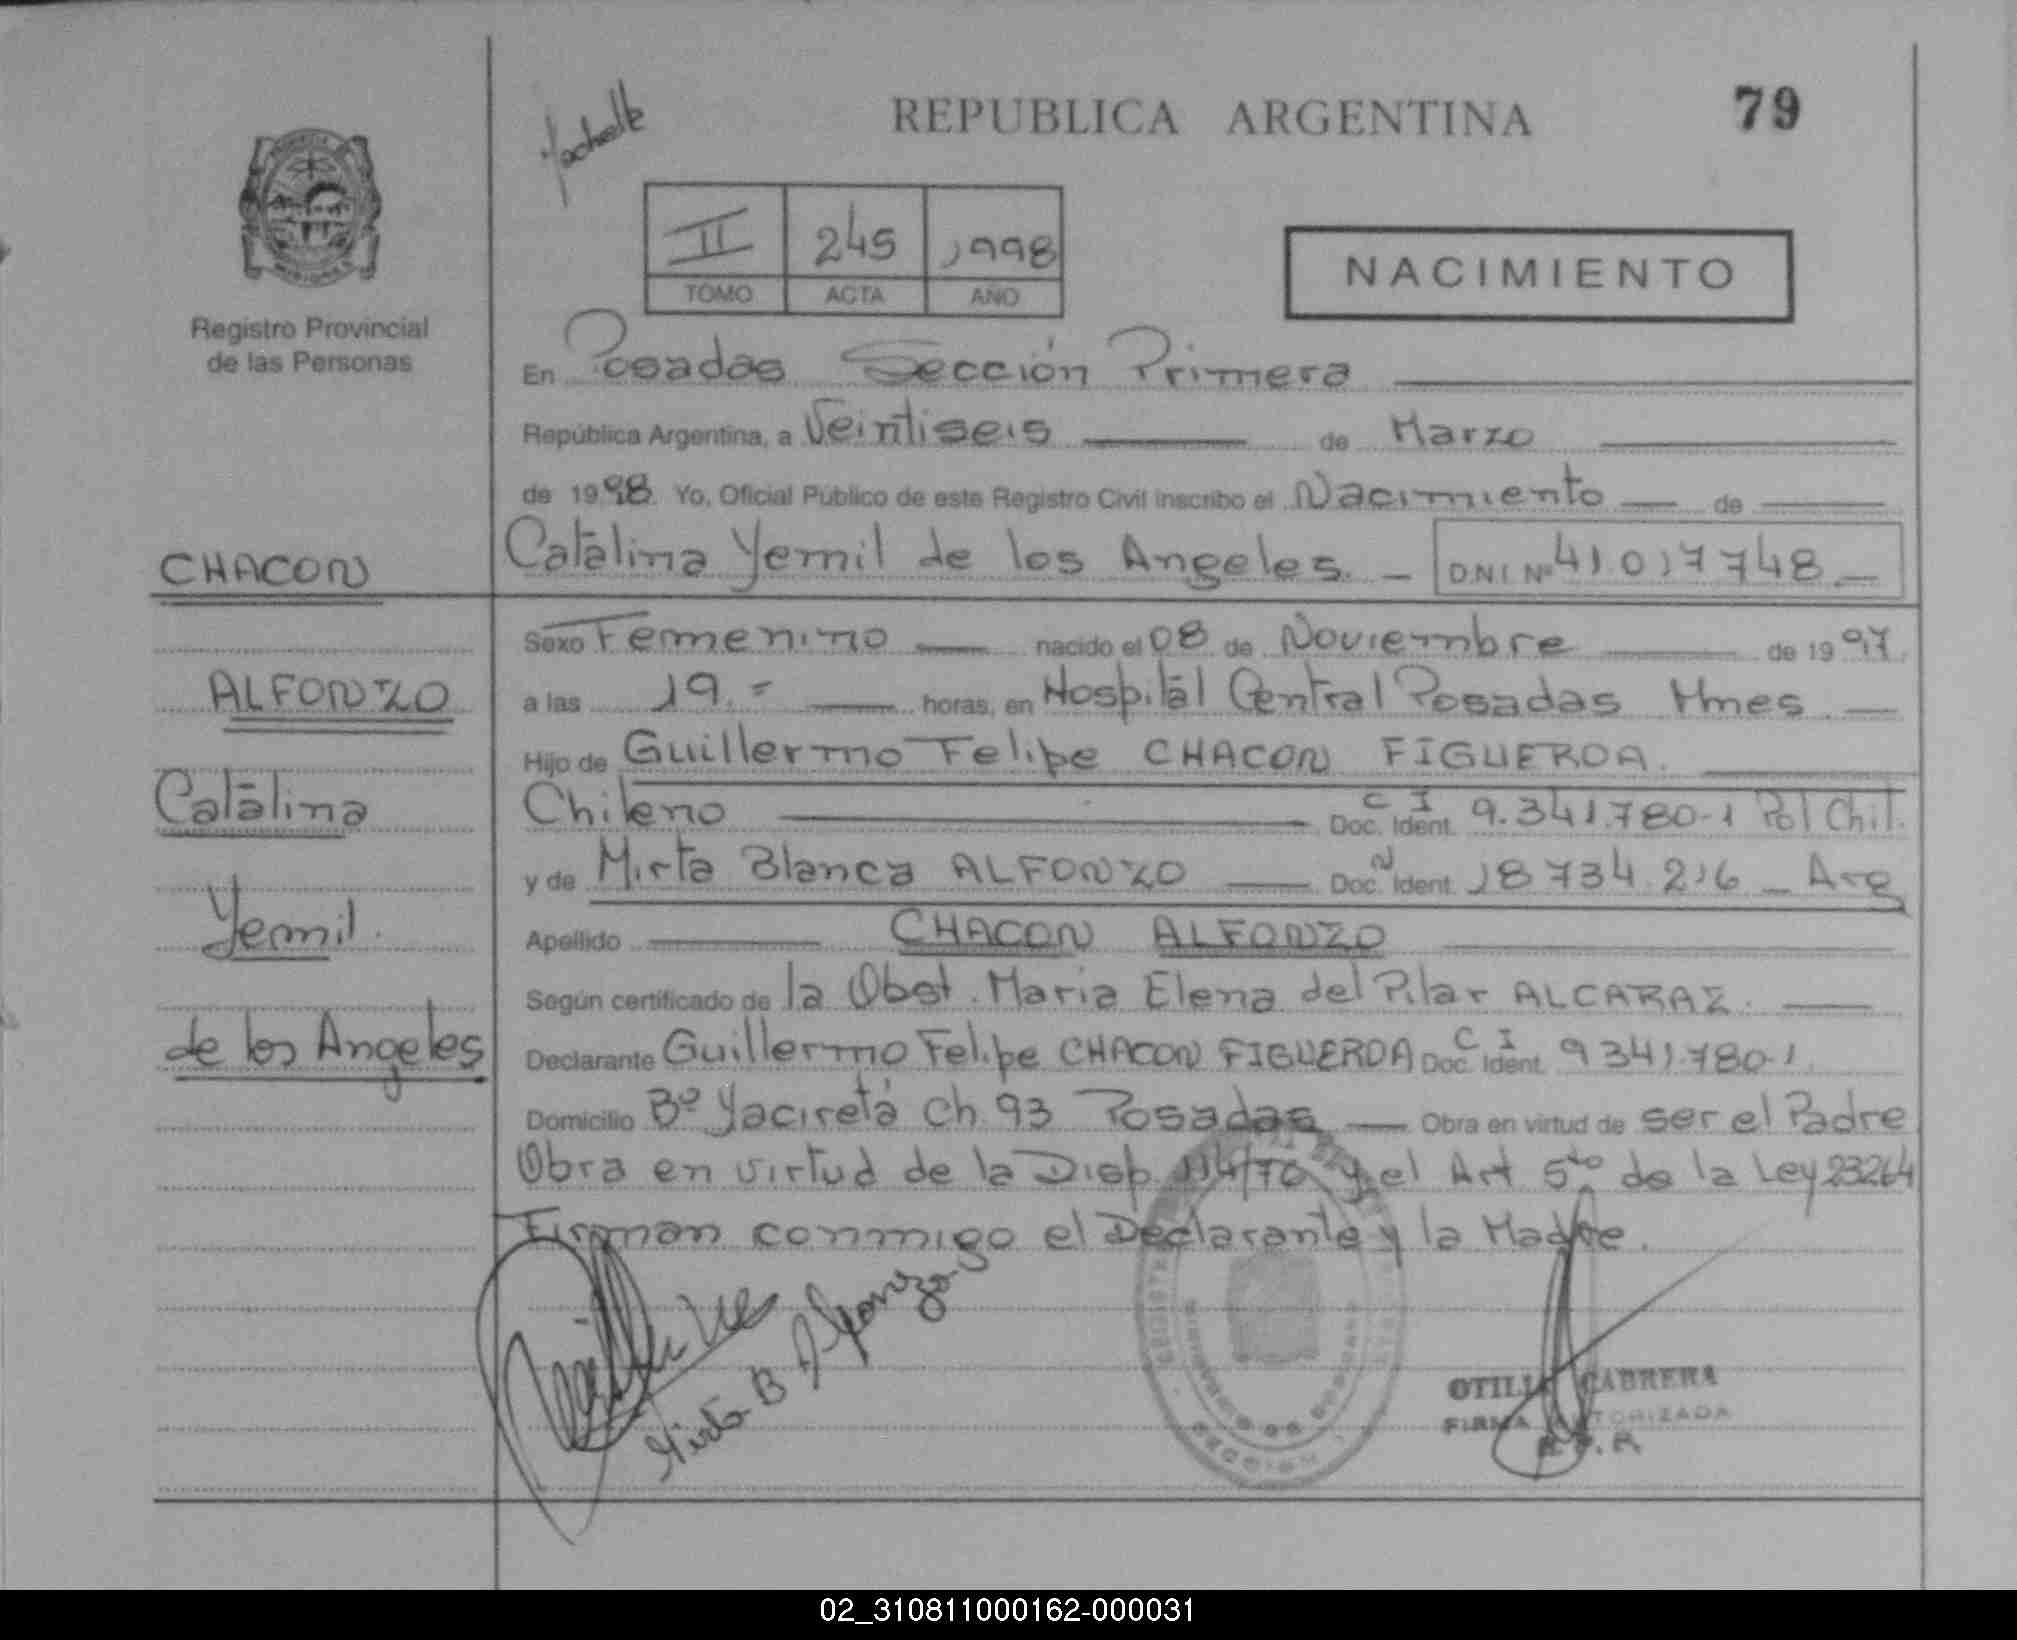 REPUBLICA ARGENTINA
79
II 245 1998
TOMO ACTA AÑO
NACIMIENTO
Registro Provincial
de las Personas
En Posadas Sección Primera
República Argentina, a Veintiseis de Marzo
de 1998 Yo, Oficial Público de este Registro Civil inscribo el Nacimiento de
CHACON
Catalina Yemil de los Angeles. D.N.I. Nº 41.017748
Sexo Femenino nacido el 08 de Noviembre de 1997
ALFONZO
a las 19.= horas, en Hospital Central Posadas Mnes.
Hijo de Guillermo Felipe CHACON FIGUEROA.
Catalina
Chileno C I Doc. Ident. 9.341.780-1 Pol Chil.
y de Mirta Blanca ALFONZO N Doc. Ident. 18 734.216 Arg
Yemil.
Apellido CHACON ALFONZO
Según certificado de la Obst. Maria Elena del Pilar ALCARAZ.
de los Angeles
Declarante Guillermo Felipe CHACON FIGUEROA C I Doc. Ident. 9341.780-1.
Domicilio Bº Yacireta Ch. 93 Posadas Obra en virtud de ser el Padre
Obra en virtud de la Disp. 114/70 y el Art 5to de la Ley 23264
Firman conmigo el Declarante y la Madre.
Mirta B Alfonzo
OTILIA CABRERA
FIRMA AUTORIZADA
02_310811000162-000031